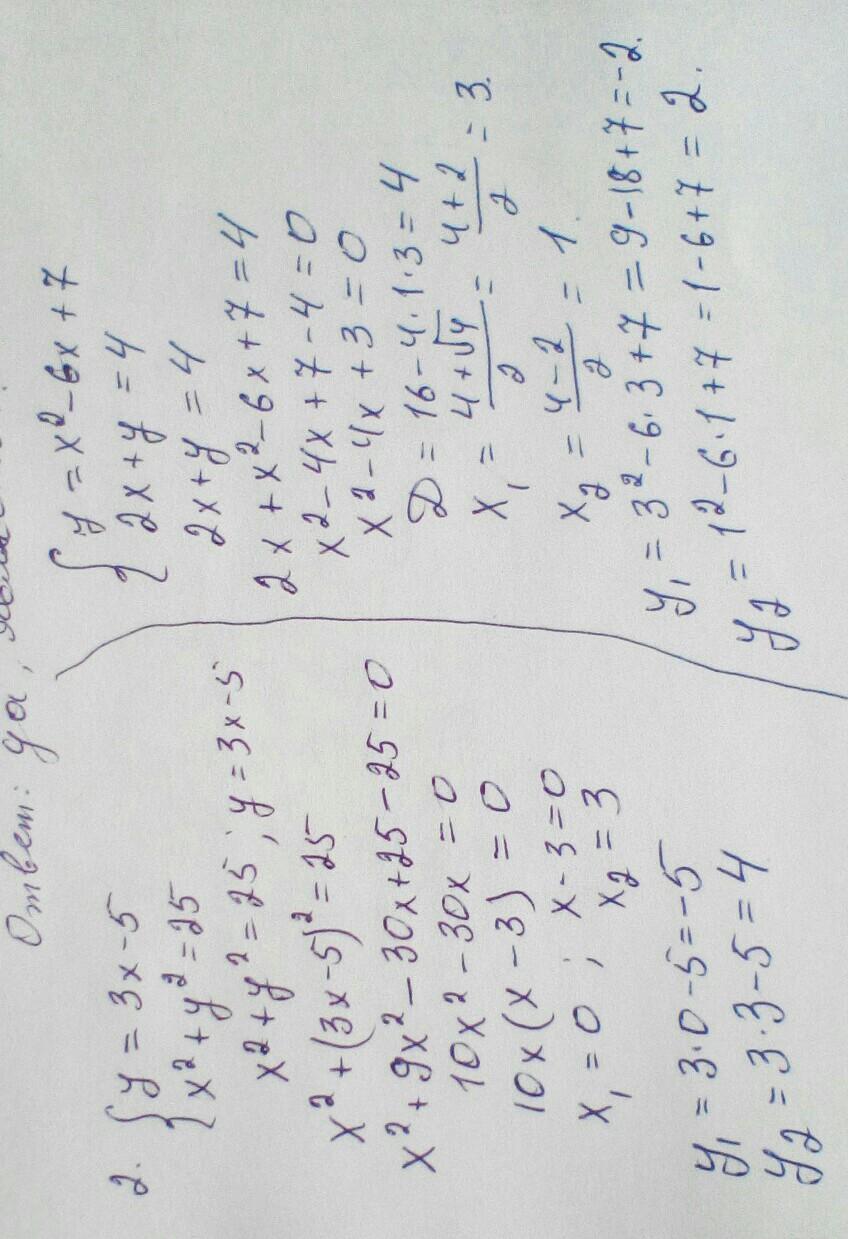 Ответ: да,
2. { y = 3x - 5
x² + y² = 25
x² + y² = 25 ; y = 3x - 5
x² + (3x - 5)² = 25
x² + 9x² - 30x + 25 - 25 = 0
10x² - 30x = 0
10x (x - 3) = 0
x₁ = 0 ; x - 3 = 0
x₂ = 3
y₁ = 3·0 - 5 = -5
y₂ = 3·3 - 5 = 4
{ y = x² - 6x + 7
2x + y = 4
2x + y = 4
2x + x² - 6x + 7 = 4
x² - 4x + 7 - 4 = 0
x² - 4x + 3 = 0
D = 16 - 4·1·3 = 4
x₁ = (4 + √4)/2 = (4 + 2)/2 = 3.
x₂ = (4 - 2)/2 = 1.
y₁ = 3² - 6·3 + 7 = 9 - 18 + 7 = -2.
y₂ = 1² - 6·1 + 7 = 1 - 6 + 7 = 2.